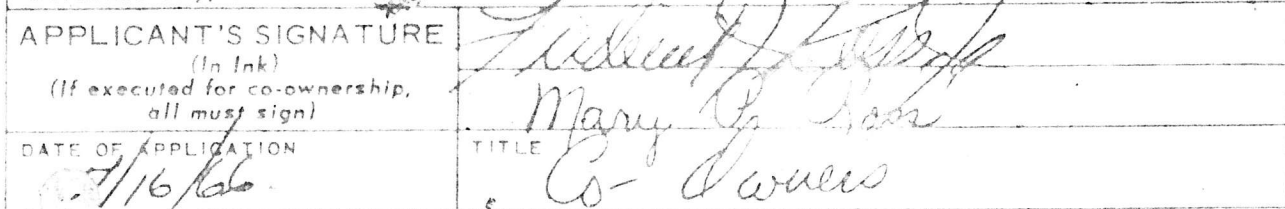 APPLICANT'S SIGNATURE
(In Ink)
(If executed for co-ownership,
all must sign)
Mary
DATE OF APPLICATION
7/16/66
TITLE
Co-Owners